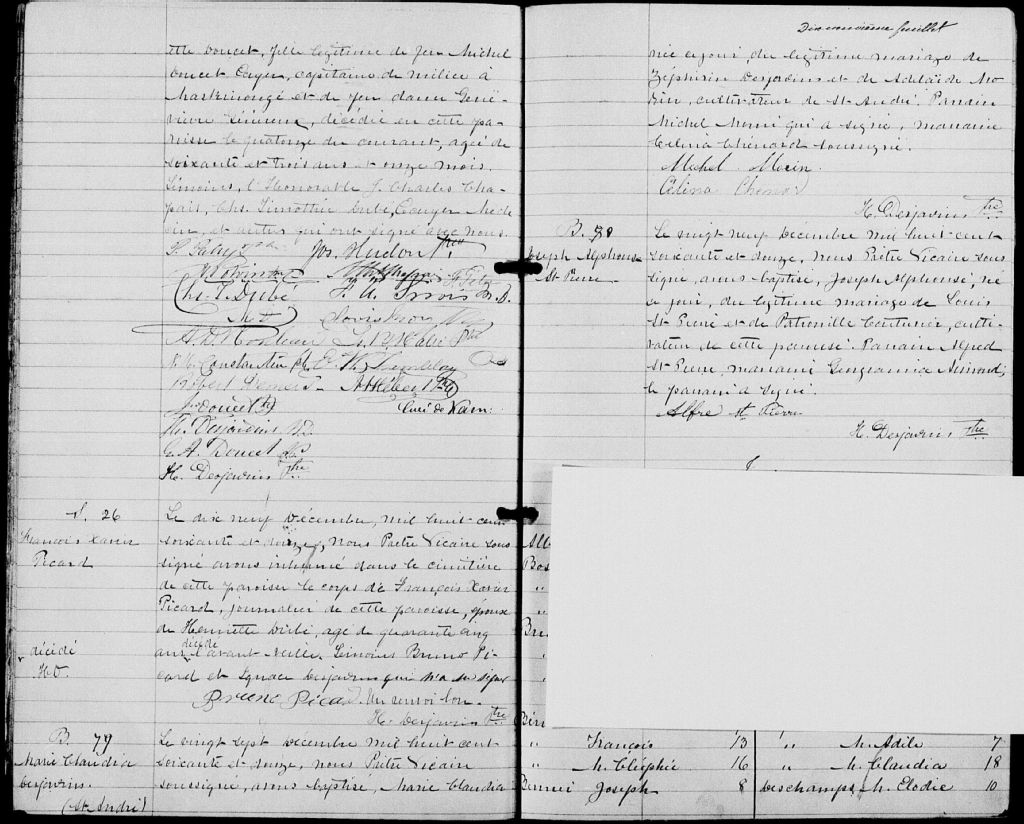 ette Doucet, fille légitime de feu Michel
Doucet Ecuyer, capitaine de milice à
Maskinongé et de feu dame Gene-
viève, décédée en cette pa-
roisse le quatorze du courant, agée de
soixante et trois ans et onze mois.
Témoins, l'Honorable J. Charles Cha-
pais, Chs. Timothée Dubé, Ecuyer Méde
cin, et autres qui ont signé avec nous.
Jos. Hudon Ptre
Chs. T. Dubé
M D
N. C. Constantin Ptre E. W. Tremblay
Robert Demers Ptre A. Hébert Ptre
J. Doucet Ptre Curé de Kam:
H. Desjardins M D
G. A. Doucet
H. Desjardins Ptre
S. 26
François Xavier
Picard
décédé
H. D.
Le dix neuf Décembre, mil huit cent
soixante et douze, nous Prêtre Vicaire sous
signé avons inhumé dans le cimitière
de cette paroisse le corps de François Xavier
Picard, journalier de cette paroisse, époux
de Henriette Dubé, agé de quarante cinq
ans décédé l'avant-veille. Témoins Bruno Pi-
card et Ignace Desjardins qui n'a su signer
Bruno Picard. Un renvoi bon.
H. Desjardins Ptre
B. 79
Marie Claudia
Desjardins.
(St. André)
Le vingt sept Décembre mil huit cent
soixante et douze, nous Prêtre Vicaire
soussigné, avons baptisé, Marie Claudia
Dix neuvième feuillet
née ce jour, du légitime mariage de
Zéphirin Desjardins et de Adelaïde Mo-
rin, cultivateur de St. André. Parrain
Michel Morin qui a signé, marraine
Célina Chénard soussigné.
Michel Morin.
Célina Chenard
H. Desjardins Ptre
B. 80
Joseph Alphonse
St. Pierre
Le vingt neuf Décembre mil huit cent
soixante et douze, nous Prêtre Vicaire sous
signé, avons baptisé, Joseph Alphonse, né
ce jour, du légitime mariage de Louis
St. Pierre et de Pétronille Couturier, culti-
vateur de cette paroisse. Parrain Alfred
St. Pierre, marraine Georgianna
le parrain a signé.
Alfre St Pierre
H. Desjardins Ptre
Alb
Bos
"
"
Bru
"
"
Bér
" François 13
" M. Cléophée 16
Bernier Joseph 8
" M. Adèle 7
" M. Claudia 18
Deschamps M. Elodie 10